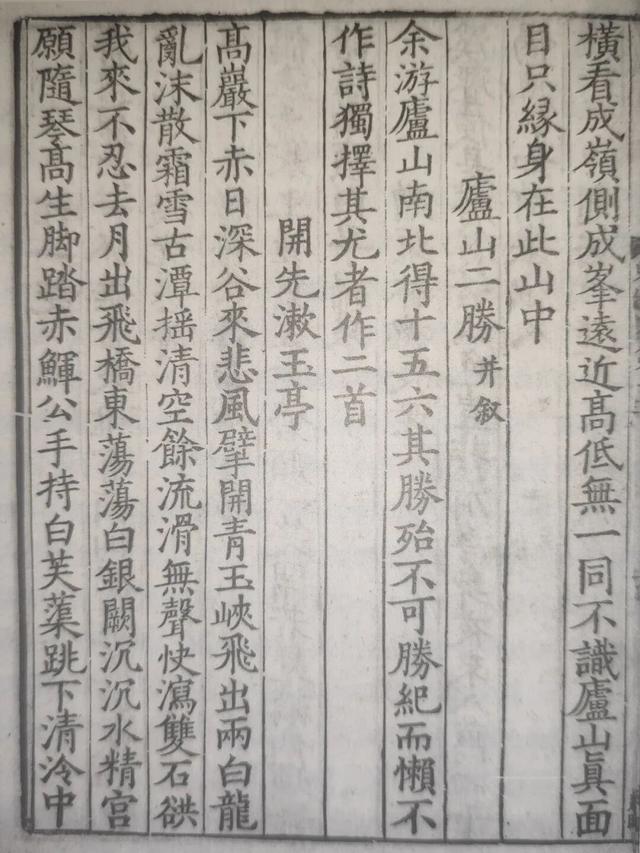 橫看成嶺側成峯遠近髙低無一同不識廬山眞面
目只緣身在此山中
廬山二勝并叙
余游廬山南北得十五六其勝殆不可勝紀而懶不
作詩獨擇其尤者作二首
開先漱玉亭
髙巖下赤日深谷來悲風擘開青玉峽飛出兩白龍
亂沫散霜雪古潭摇清空餘流滑無聲快瀉雙石谼
我來不忍去月出飛橋東蕩蕩白銀闕沉沉水精宮
願隨琴髙生脚踏赤鯶公手持白芙蕖跳下清泠中